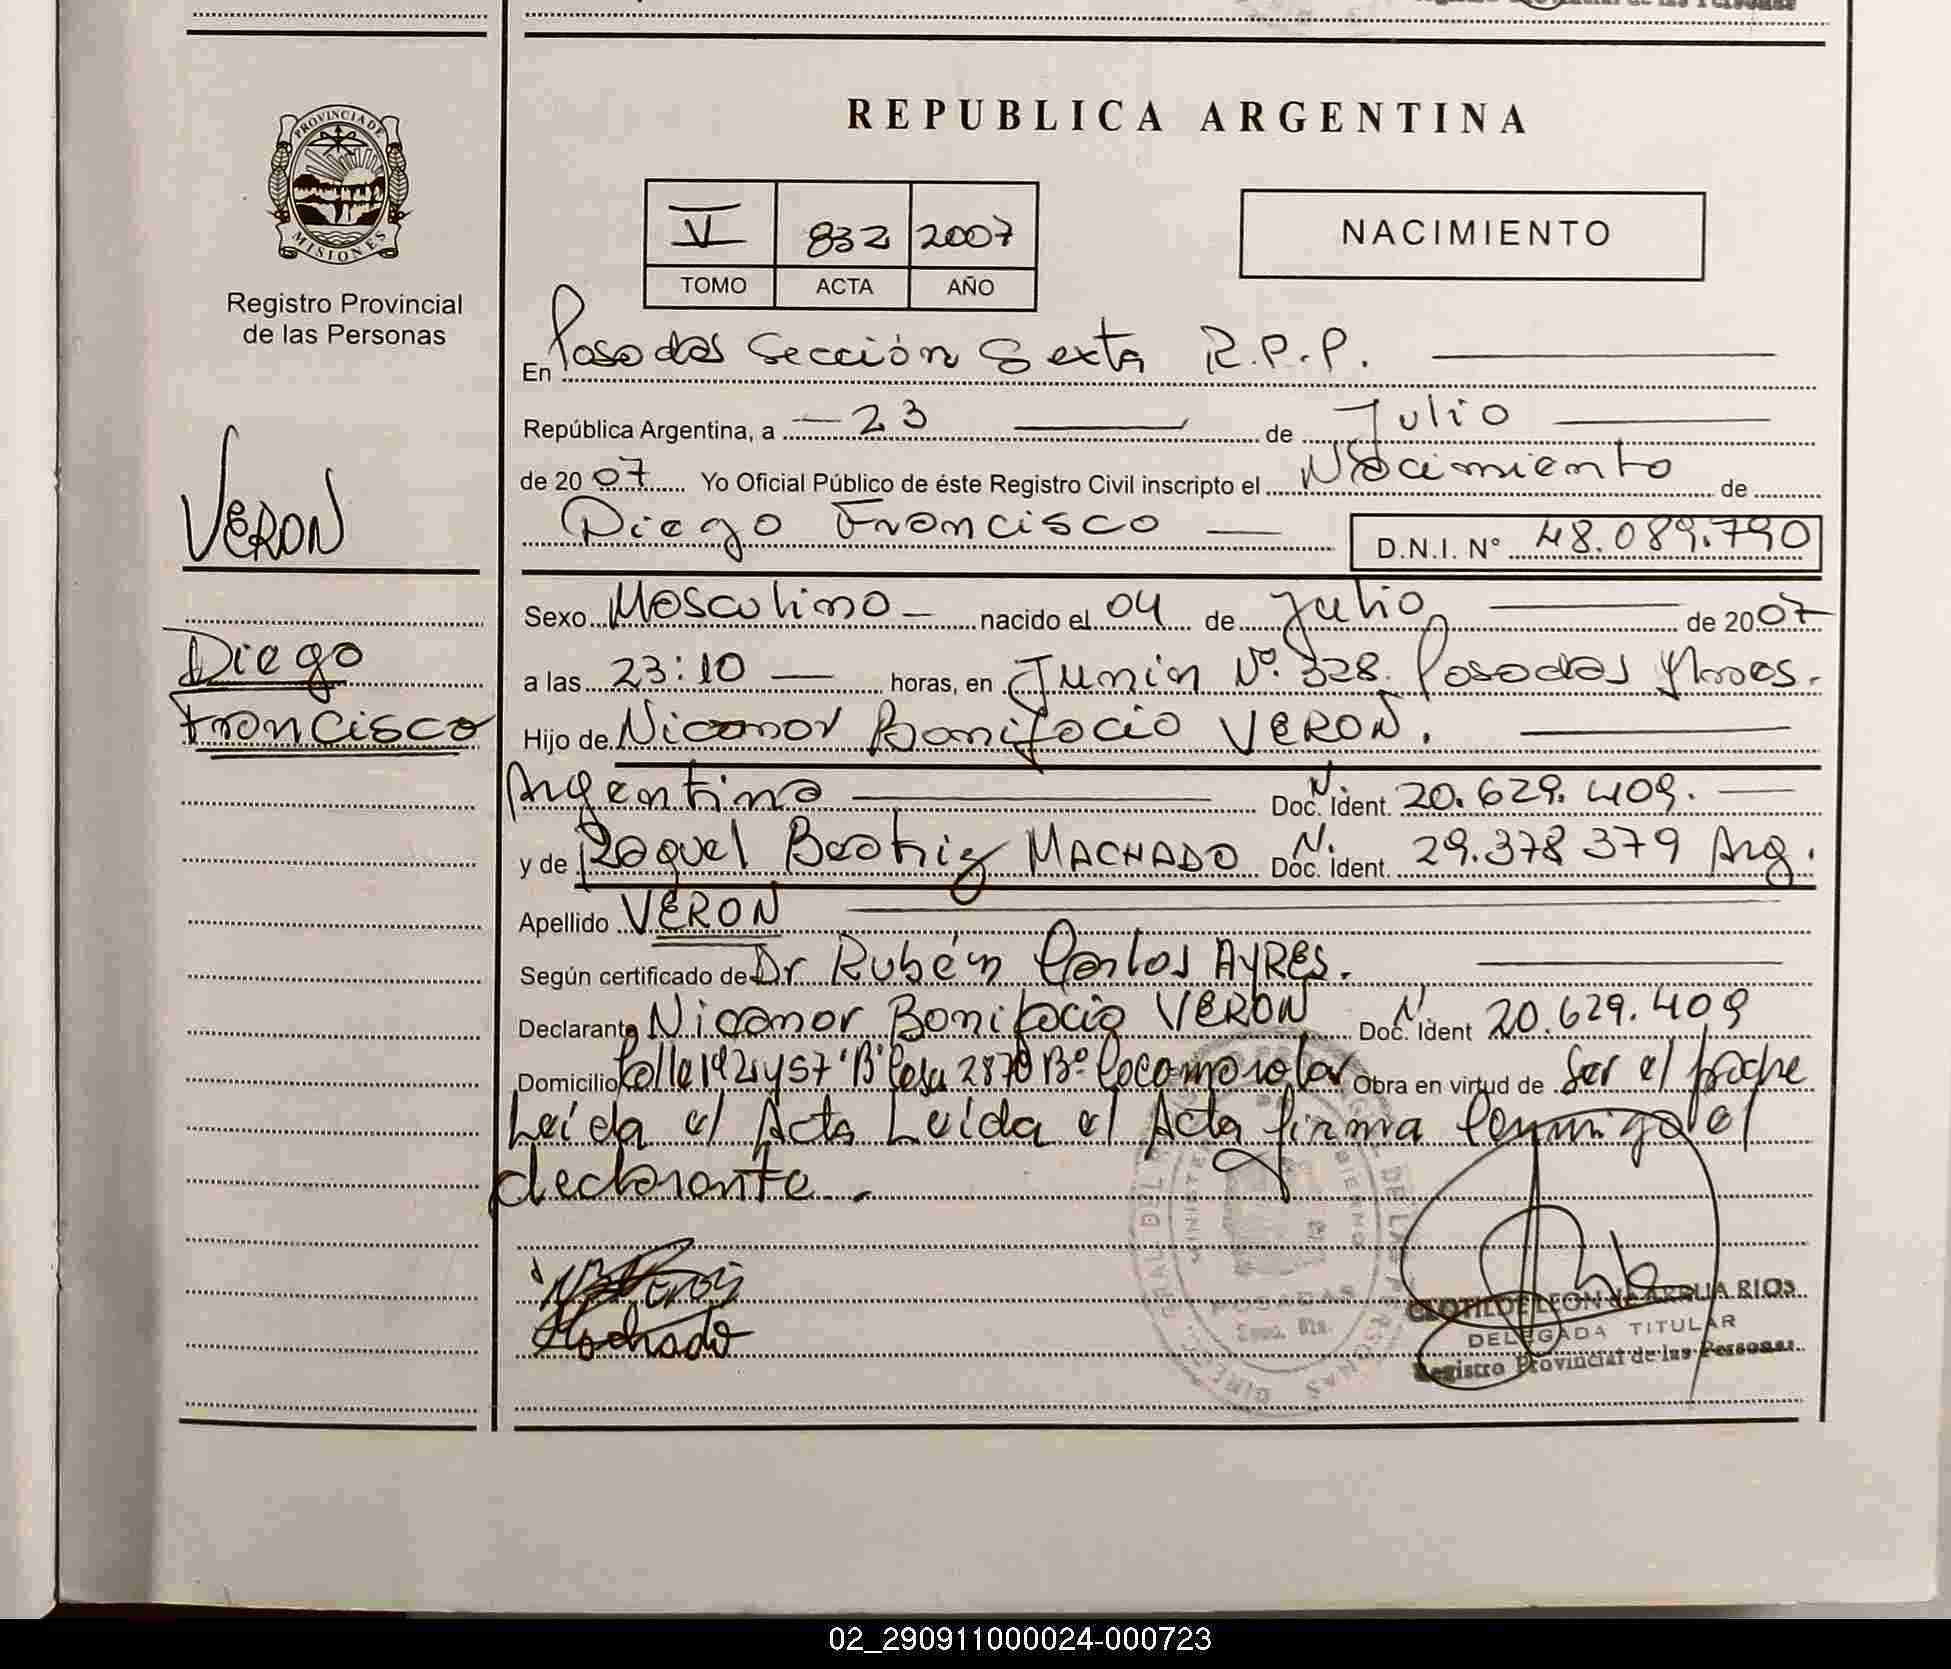 PROVINCIA DE
MISIONES
Registro Provincial
de las Personas
VERON
Diego
Francisco
REPUBLICA ARGENTINA
V 832 2007
TOMO ACTA AÑO
NACIMIENTO
En Posadas Sección Sexta R.P.P.
República Argentina, a 23 de Julio
de 2007 Yo Oficial Público de éste Registro Civil inscripto el Nacimiento de
Diego Francisco D.N.I. N° 48.089.790
Sexo Masculino nacido el 04 de Julio de 2007
a las 23:10 horas, en Junin N°. 328. Posadas
Hijo de Nicanor Bonifacio VERON.
Argentina N. Doc. Ident. 20.629.409.
y de Raquel Beatriz MACHADO N. Doc. Ident. 29.378379 Arg.
Apellido VERON
Según certificado de Dr Rubén Carlos AYRES.
Declarante Nicanor Bonifacio VERON N Doc. Ident 20.629.409
Domicilio Calle 192 y 57 "B" Casa 2870 B° Cocomarola Obra en virtud de Ser el padre
Leída el Acta Leída el Acta firma Conmigo el
declarante.
Machado
POSADAS
CLOTILDE LEON de ARRUA RIOS
DELEGADA TITULAR
Registro Provincial de las Personas
02_290911000024-000723